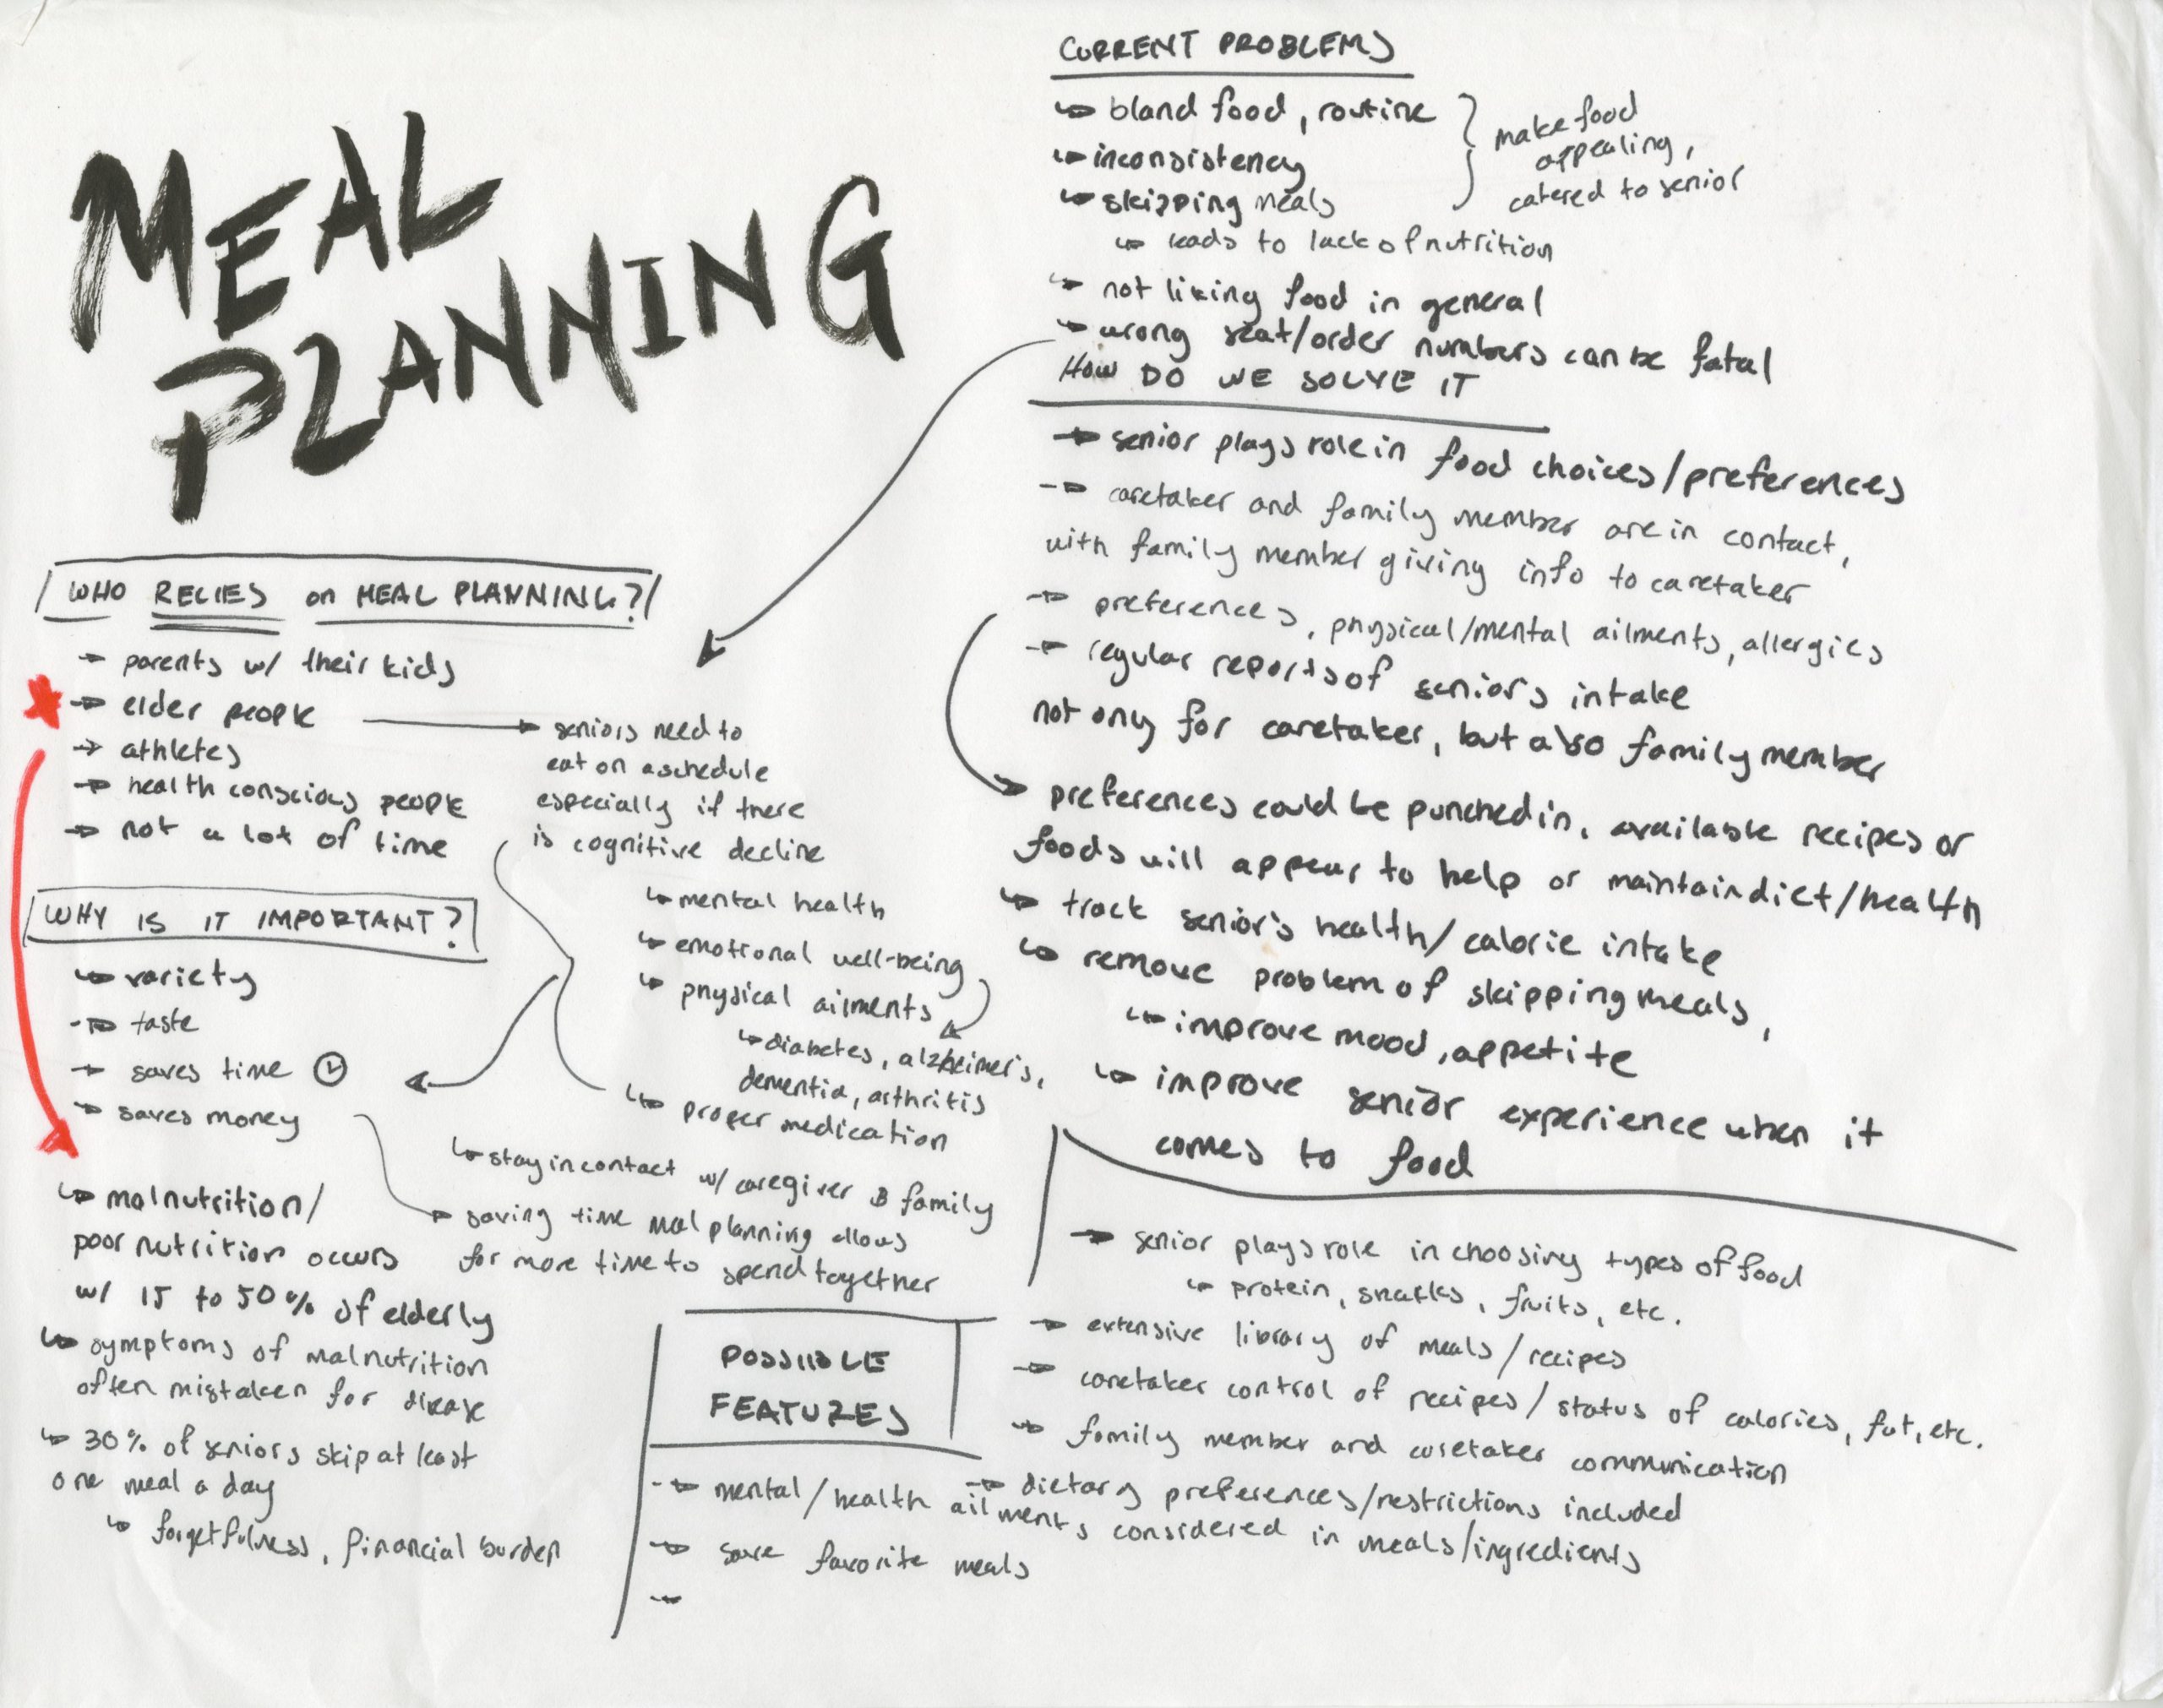 MEAL
PLANNING
WHO RELIES on MEAL PLANNING?
parents w/ their kids
elder people
athletes
health conscious people
not a lot of time
seniors need to
eat on a schedule
especially if there
is cognitive decline
mental health
emotional well-being
physical ailments
diabetes, alzheimer's,
dementia, arthritis
proper medication
WHY IS IT IMPORTANT?
variety
taste
saves time
saves money
stay in contact w/ caregiver & family
saving time meal planning allows
for more time to spend together
malnutrition/
poor nutrition occurs
w/ 15 to 50% of elderly
symptoms of malnutrition
often mistaken for disease
30% of seniors skip at least
one meal a day
forgetfulness, financial burden
CURRENT PROBLEMS
bland food, routine
inconsistency
skipping meals
make food
appealing,
catered to senior
leads to lack of nutrition
not liking food in general
wrong seat/order numbers can be fatal
HOW DO WE SOLVE IT
senior plays role in food choices/preferences
caretaker and family member are in contact,
with family member giving info to caretaker
preferences, physical/mental ailments, allergies
regular reports of senior's intake
not only for caretaker, but also family member
preferences could be punched in, available recipes or
foods will appear to help or maintain diet/health
track senior's health/calorie intake
remove problem of skipping meals,
improve mood, appetite
improve senior experience when it
comes to food
POSSIBLE
FEATURES
senior plays role in choosing types of food
protein, snacks, fruits, etc.
extensive library of meals/recipes
caretaker control of recipes/status of calories, fat, etc.
family member and caretaker communication
dietary preferences/restrictions included
mental/health ailments considered in meals/ingredients
save favorite meals